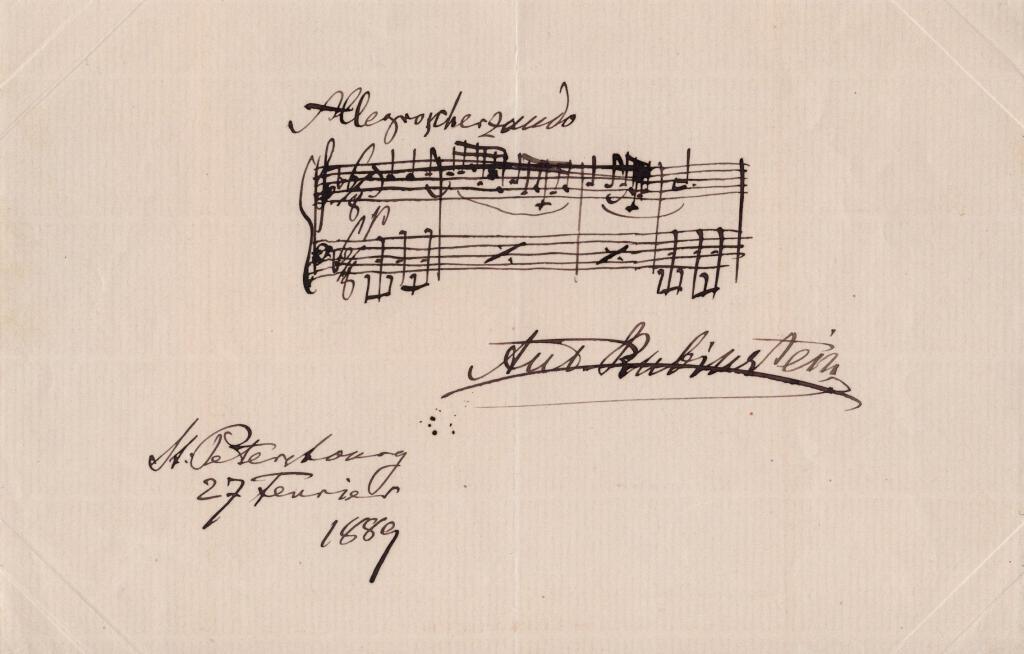 Allegro scherzando
pp
Ant. Rubinstein
St. Petersbourg
27 Fevrier
1889